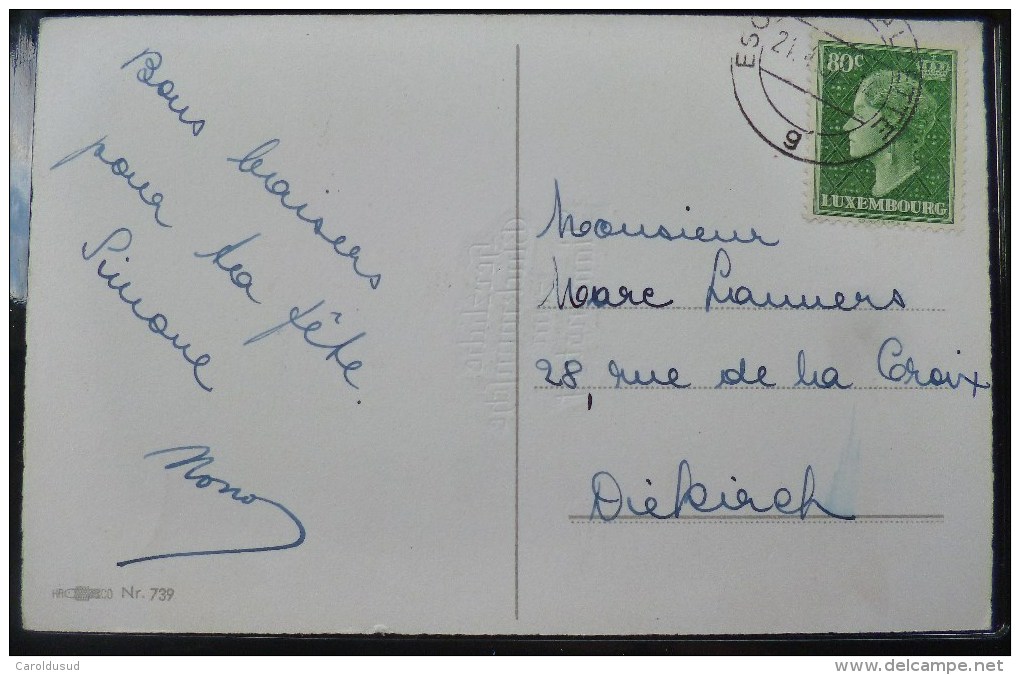 Bons baisers
pour ta fête
Simone
Nono
Nr. 739
80c
LUXEMBOURG
21.
g
Monsieur
Marc Lanners
28, rue de la Croix
Diekirch
Caroldusud
www.delcampe.net